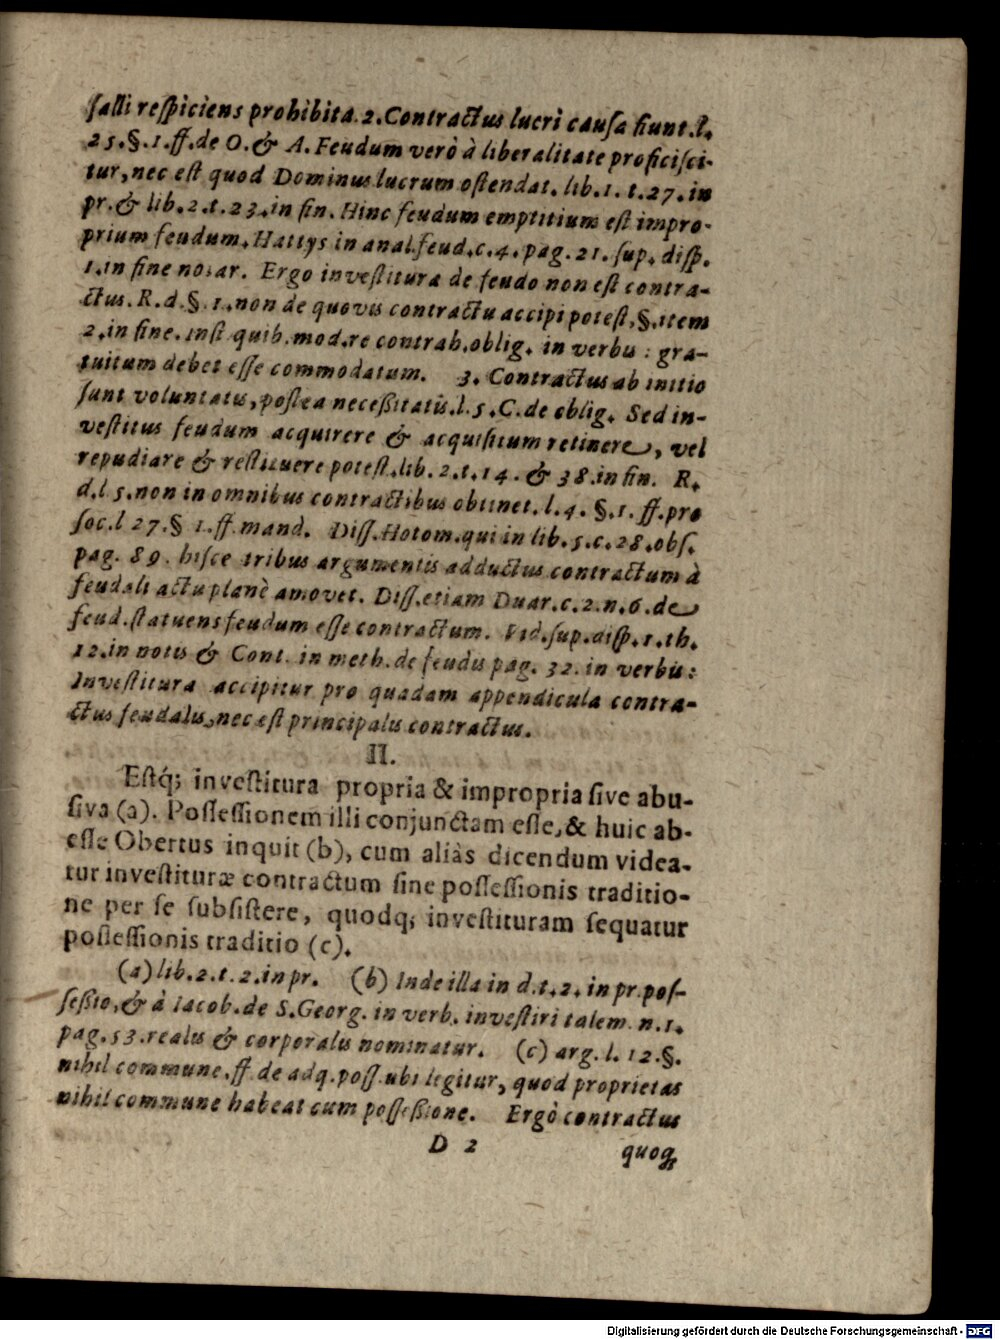 ſalli reſpiciens prohibita. 2. Contractus lucri cauſa fiunt. l.
25. §. 1. ff. de O. & A. Feudum verò à liberalitate proficiſci-
tur, nec eſt quod Dominus lucrum oſtendat. lib. 1. t. 27. in
pr. & lib. 2. t. 23. in fin. Hinc feudum emptitium eſt impro-
prium feudum. Hattys in anal. feud. c. 4. pag. 21. ſup. diſp.
1. in fine notar. Ergo inveſtitura de feudo non eſt contra-
ctus. R. d. §. 1. non de quovis contractu accipi poteſt, §. item
2. in fine. inſt quib. mod. re contrah. oblig. in verbis: gra-
tuitum debet eſſe commodatum. 3. Contractus ab initio
ſunt voluntatis, poſtea neceßitatis. l. 5. C. de oblig. Sed in-
veſtitus feudum acquirere & acquiſitum retinere, vel
repudiare & reſtituere poteſt. lib. 2. t. 14. & 38. in fin. R.
d. l. 5. non in omnibus contractibus obtinet. l. 4. §. 1. ff. pro
ſoc. l 27. § 1. ff. mand. Diſſ. Hotom. qui in lib. 5. c. 28. obſ.
pag. 89. hiſce tribus argumentis adductus contractum à
feudali actu planè amovet. Diſſ. etiam Duar. c. 2. n. 6. de
feud. ſtatuens feudum eſſe contractum. Vid. ſup. diſp. 1. th.
12. in notis & Cont. in meth. de feudis pag. 32. in verbis:
Inveſtitura accipitur pro quadam appendicula contra-
ctus feudalis, nec eſt principalis contractus.
II.
Eſtq́; inveſtitura propria & impropria ſive abu-
ſiva (a). Poſſeſſionem illi conjunctam eſſe, & huic ab-
eſſe Obertus inquit (b), cum aliàs dicendum videa-
tur inveſtituræ contractum ſine poſſeſſionis traditio-
ne per ſe ſubſiſtere, quodq; inveſtituram ſequatur
poſſeſſionis traditio (c).
(a) lib. 2. t. 2. in pr. (b) Inde illa in d. t. 2. in pr. poſ-
ſeßio, & à Iacob. de S. Georg. in verb. inveſtiri talem. n. 1.
pag. 53. realis & corporalis nominatur. (c) arg. l. 12. §.
nihil commune. ff. de adq. poſſ. ubi legitur, quod proprietas
nihil commune habeat cum poſſeßione. Ergò contractus
D 2 quoq;
Digitalisierung gefördert durch die Deutsche Forschungsgemeinschaft - DFG